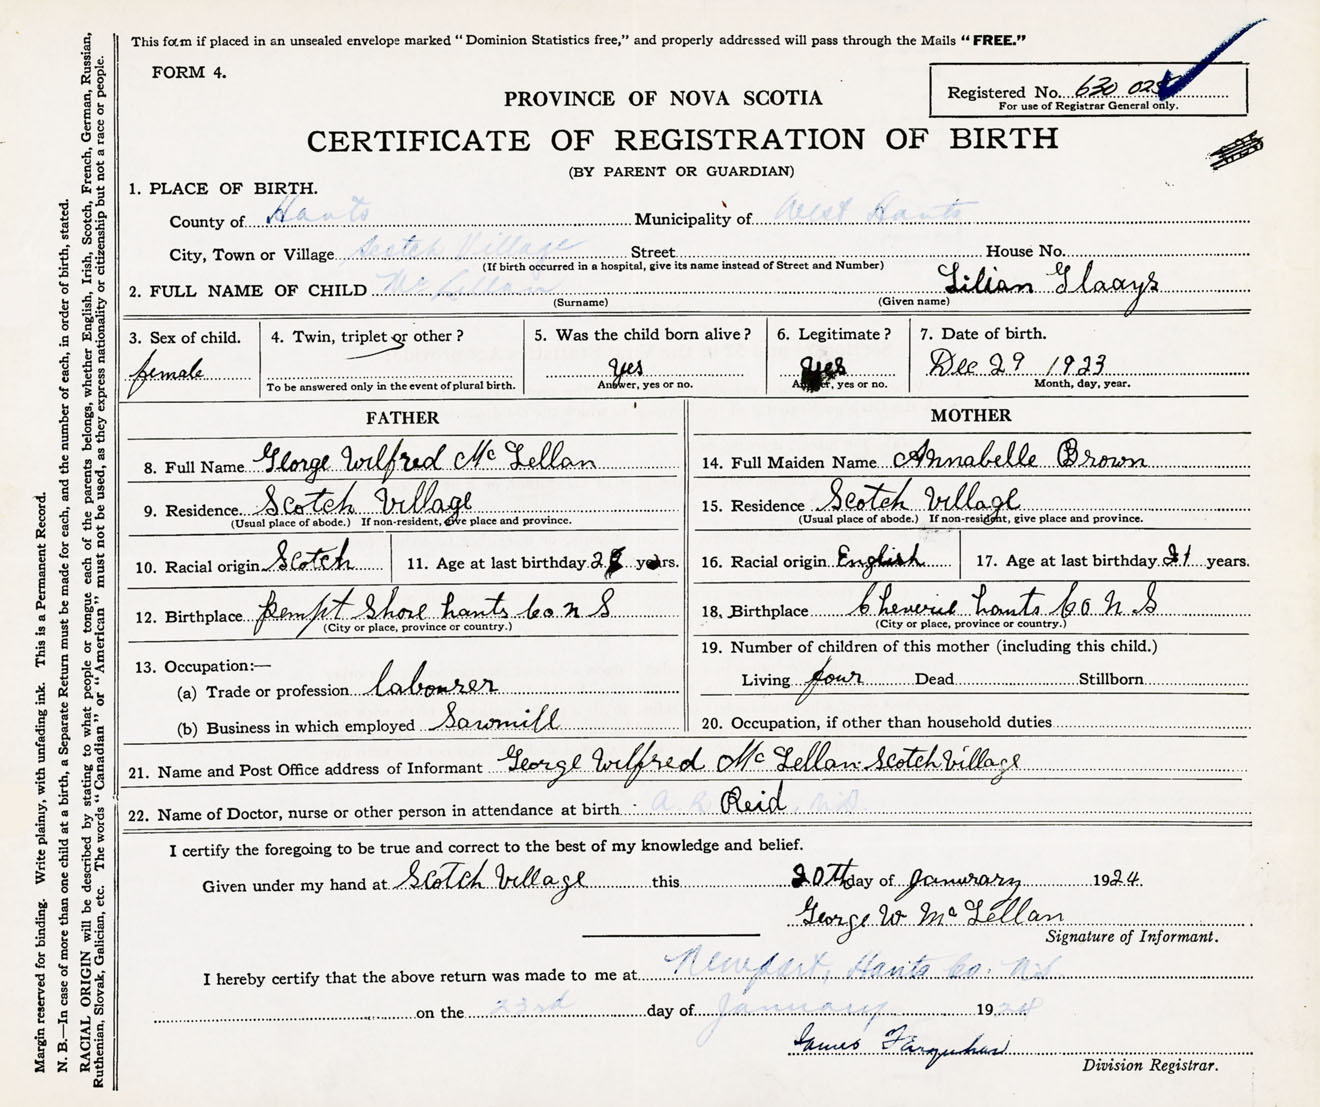 This form if placed in an unsealed envelope marked "Dominion Statistics free," and properly addressed will pass through the Mails "FREE."
FORM 4.
Registered No. 630
For use of Registrar General only.
PROVINCE OF NOVA SCOTIA
CERTIFICATE OF REGISTRATION OF BIRTH
(BY PARENT OR GUARDIAN)
1. PLACE OF BIRTH.
County of Hants Municipality of West Hants
City, Town or Village Scotch Village Street House No.
(If birth occurred in a hospital, give its name instead of Street and Number)
2. FULL NAME OF CHILD McLellan Lilian Glaays
(Surname) (Given name)
3. Sex of child. 4. Twin, triplet or other? 5. Was the child born alive? 6. Legitimate? 7. Date of birth.
female yes yes Dec 29 1923
To be answered only in the event of plural birth. Answer, yes or no. Answer, yes or no. Month, day, year.
FATHER
8. Full Name George Wilfred Mc Lellan
9. Residence Scotch Village
(Usual place of abode.) If non-resident, give place and province.
10. Racial origin Scotch 11. Age at last birthday years.
12. Birthplace Kempt Shore hants Co. n S
(City or place, province or country.)
13. Occupation:—
(a) Trade or profession labourer
(b) Business in which employed Sawmill
MOTHER
14. Full Maiden Name Annabelle Brown
15. Residence Scotch Village
(Usual place of abode.) If non-resident, give place and province.
16. Racial origin English 17. Age at last birthday 21 years.
18. Birthplace Cheverie hants Co. N. S
(City or place, province or country.)
19. Number of children of this mother (including this child.)
Living four Dead Stillborn
20. Occupation, if other than household duties
21. Name and Post Office address of Informant George Wilfred Mc Lellan Scotch Village
22. Name of Doctor, nurse or other person in attendance at birth A. R. Reid, M.D.
I certify the foregoing to be true and correct to the best of my knowledge and belief.
Given under my hand at Scotch Village this 20th day of Janurary 1924.
George W McLellan
Signature of Informant.
I hereby certify that the above return was made to me at Newport, Hants Co. N.S
on the 23rd day of January 1924
James Farquhar
Division Registrar.
Margin reserved for binding. Write plainly, with unfading ink. This is a Permanent Record.
N. B.—In case of more than one child at a birth, a Separate Return must be made for each, and the number of each, in order of birth, stated.
RACIAL ORIGIN will be described by stating to what people or tongue each of the parents belongs, whether English, Irish, Scotch, French, German, Russian,
Ruthenian, Slovak, Galician, etc. The words "Canadian" or "American" must not be used, as they express nationality or citizenship but not a race or people.